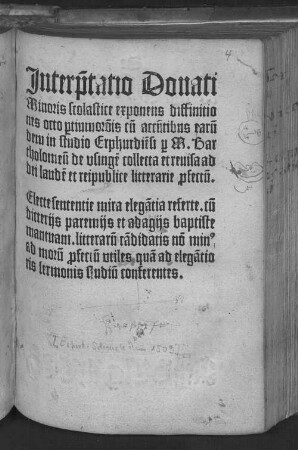 4
Interp̄tatio Donati
Minoris scolastice exponens diffinitio
nes octo ptiumorōnis cū accn̄tibus earū
dem in studio Erphurdiēsi ꝑ M. Bar
tholomeū de vsingē collecta et reuisa ad
dei laudē et reipublice litterarie ꝓfectū.
Electe sententie mira elegātia referte. cū
dicterijs paremijs et adagijs baptiste
mantuani. litterarū cādidatis nō minꝰ
ad morū ꝓfectū vtiles quā ad elegātio
ris sermonis studiū conferentes.